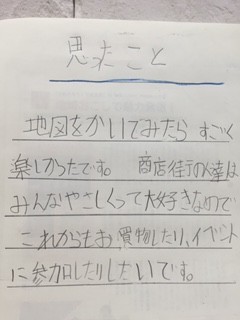 思ったこと
地図をかいてみたら すごく
楽しかったです。 商店街の人達は
みんなやさしくって大好きなので
これからもお買物したり、イベント
に参加したりしたいです。